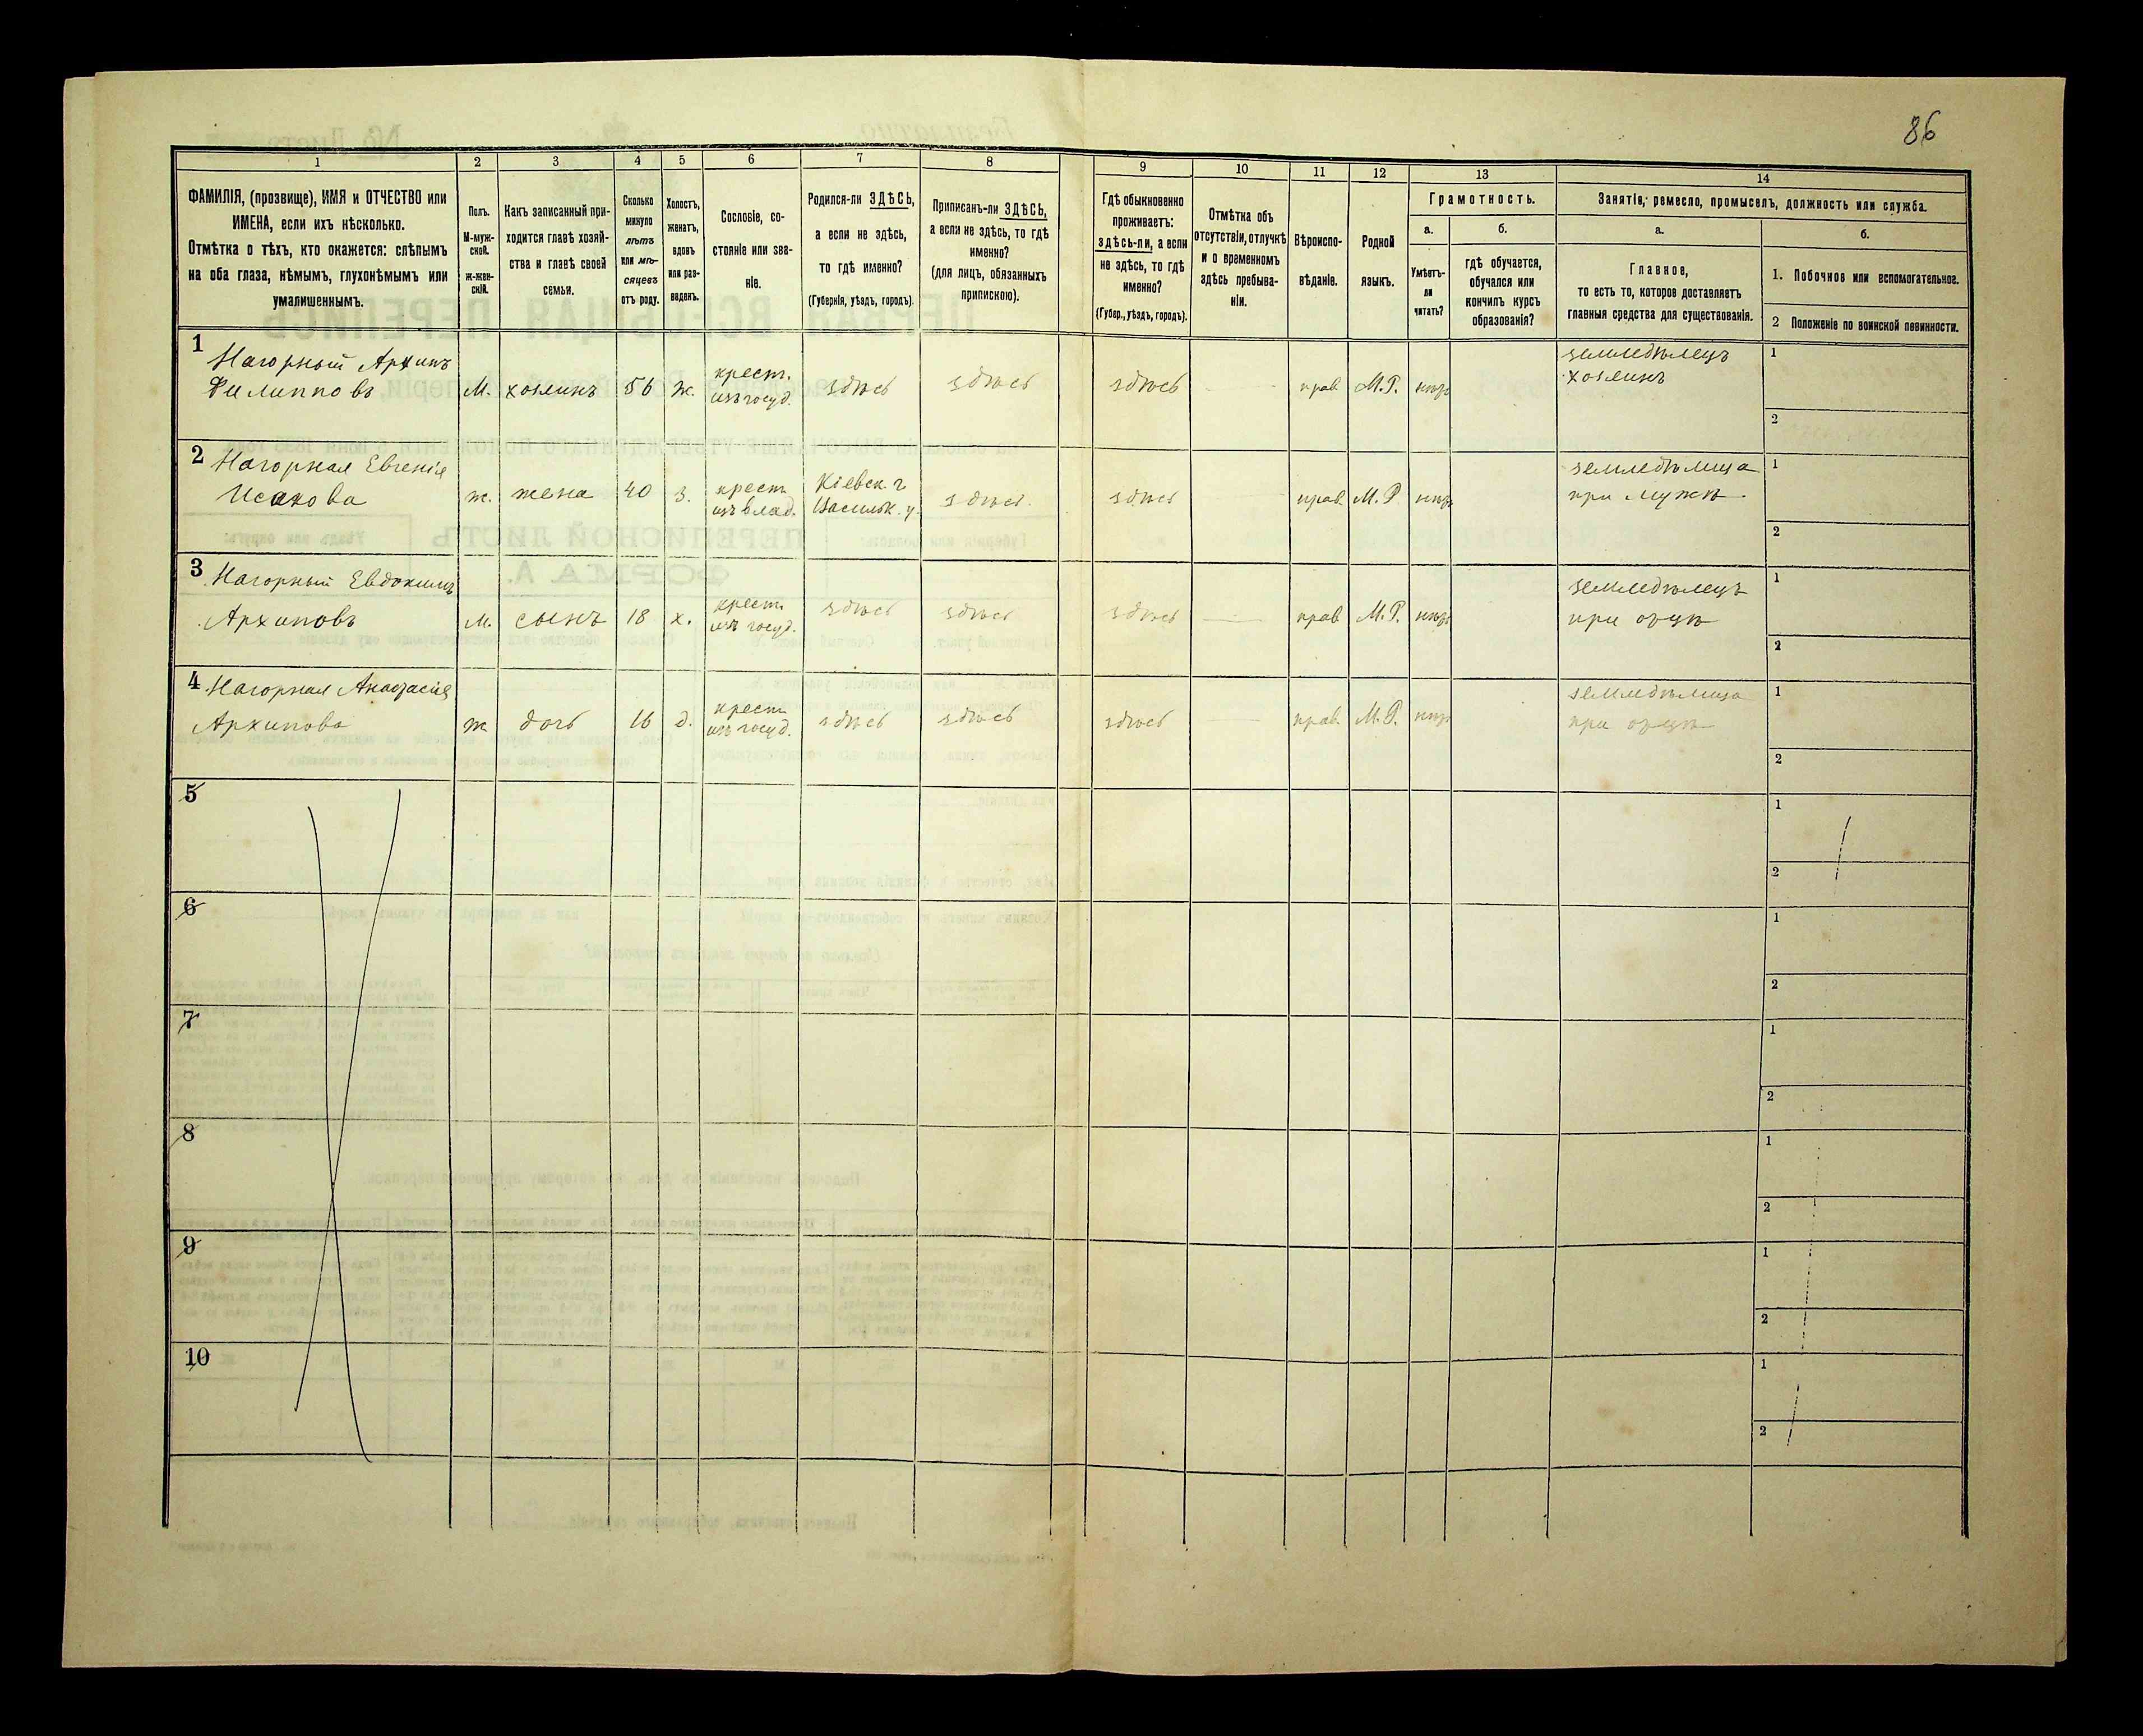 86
1 2 3 4 5 6 7 8 9 10 11 12 13 14
ФАМИЛІЯ, (прозвище), ИМЯ и ОТЧЕСТВО или
ИМЕНА, если ихъ нѣсколько.
Отмѣтка о тѣхъ, кто окажется: слѣпымъ
на оба глаза, нѣмымъ, глухонѣмымъ или
умалишеннымъ.
Полъ.
М-муж-
ской.
ж-жен-
скій.
Какъ записанный при-
ходится главѣ хозяй-
ства и главѣ своей
семьи.
Сколько
минуло
лѣтъ
или мѣ-
сяцевъ
отъ роду.
Холостъ,
женатъ,
вдовъ
или раз-
веденъ.
Сословіе, со-
стояніе или зва-
ніе.
Родился-ли ЗДѢСЬ,
а если не здѣсь,
то гдѣ именно?
(Губернія, уѣздъ, городъ).
Приписанъ-ли ЗДѢСЬ,
а если не здѣсь, то гдѣ
именно?
(для лицъ, обязанныхъ
припискою).
Гдѣ обыкновенно
проживаетъ:
здѣсь-ли, а если
не здѣсь, то гдѣ
именно?
(Губер., уѣздъ, городъ).
Отмѣтка объ
отсутствіи, отлучкѣ
и о временномъ
здѣсь пребыва-
ніи.
Вѣроиспо-
вѣданіе.
Родной
языкъ.
Грамотность.
а.
Умѣетъ-
ли
читать?
б.
гдѣ обучается,
обучался или
кончилъ курсъ
образованія?
Занятіе, ремесло, промыселъ, должность или служба.
а.
Главное,
то есть то, которое доставляетъ
главныя средства для существованія.
б.
1. Побочное или вспомогательное.
2 Положеніе по воинской повинности.
1 Нагорный Архипъ
Филипповъ М. хозяинъ 56 ж. крест. изъ госуд. здѣсь здѣсь здѣсь прав. М.Р. нѣтъ земледѣлецъ хозяинъ 1
2
2 Нагорная Евгенія
Исакова ж. жена 40 з. крест. изъ влад. Кіевск. г. Васильк. у. здѣсь. здѣсь прав. М.Р нѣтъ земледѣлица при мужѣ 1
2
3 Нагорный Евдокимъ
Архиповъ М. сынъ 18 х. крест. изъ госуд. здѣсь здѣсь здѣсь прав. М.Р. нѣтъ земледѣлецъ при отцѣ 1
2
4 Нагорная Анастасія
Архипова ж дочь 16 д. крест. изъ госуд. здѣсь здѣсь здѣсь прав. М.Р. нѣтъ земледѣлица при отцѣ 1
2
5 1
2
6 1
2
7 1
2
8 1
2
9 1
2
10 1
2